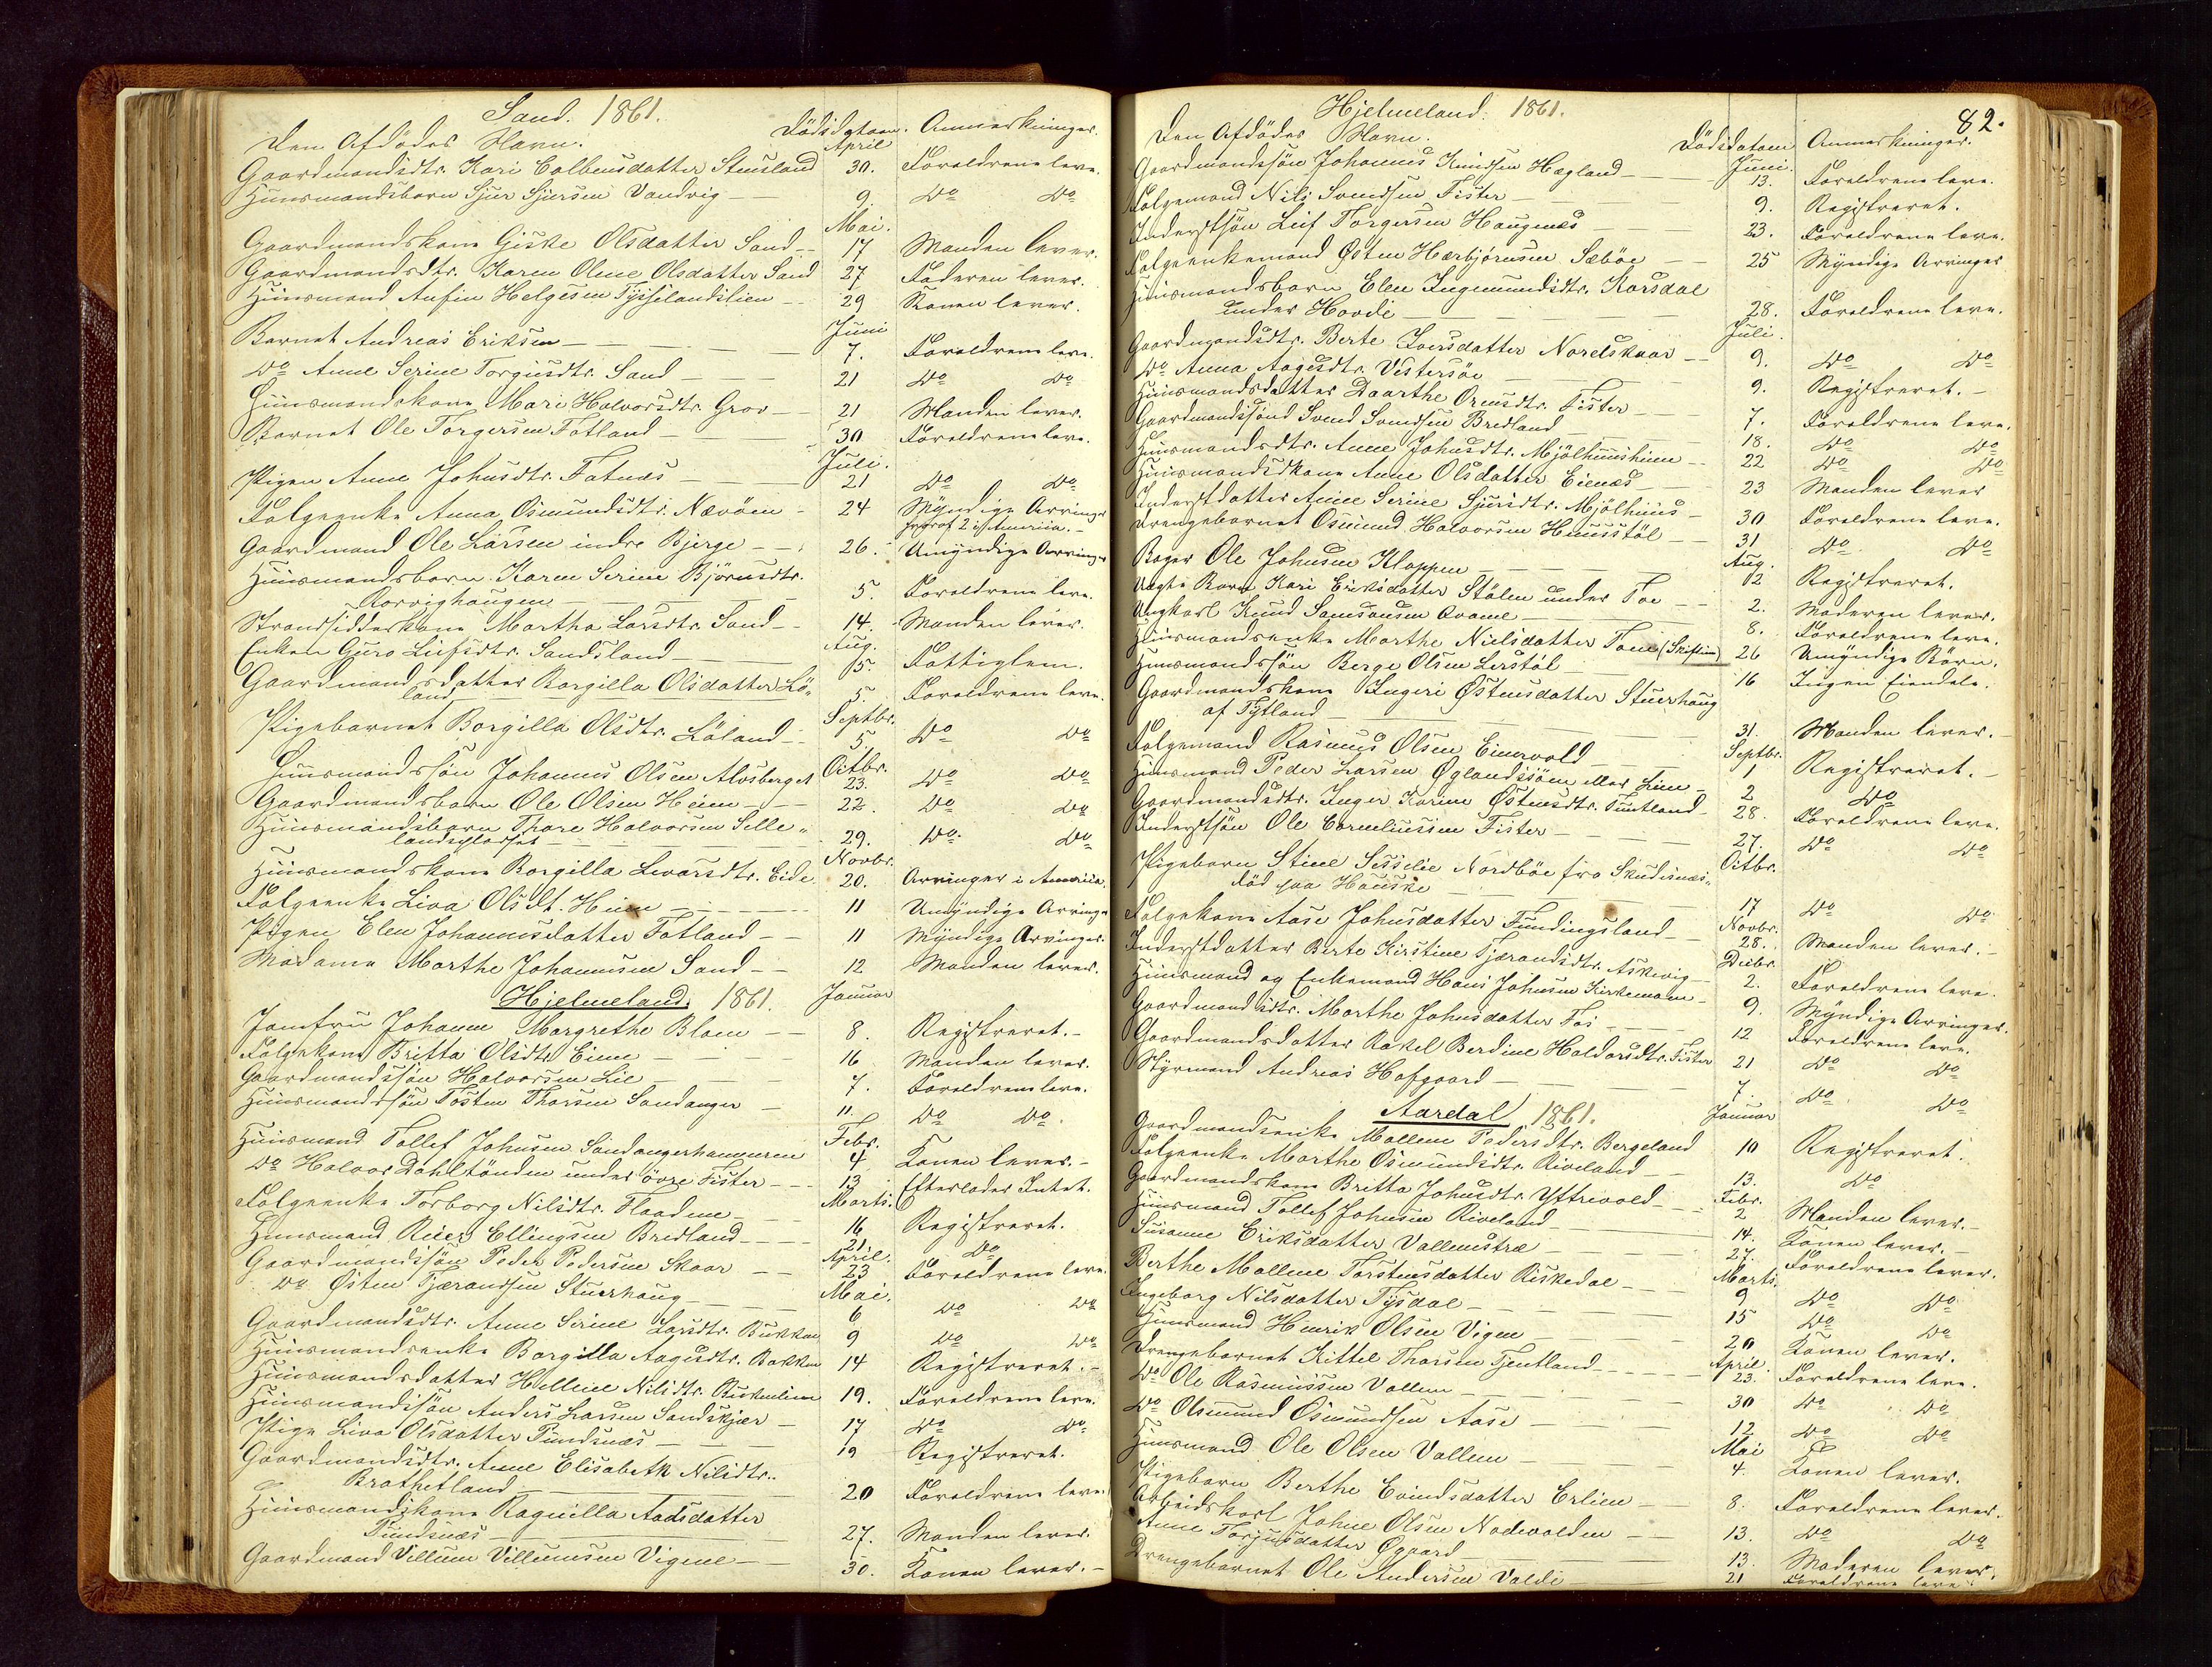 Sand. 1861.
Den Afdødes Navn. Dødsdatum. Anmerkninger.
April
Gaardmandsdtr. Kari Colbensdatter Stensland 30. Forældrene leve.
Huusmandsbarn Sjur Sjursen Vandvig — 9. Do Do
Mai.
Gaardmandskone Giske Olsdatter Sand — 17 Manden lever.
Gaardmandsdtr. Karen Oline Olsdatter Sand 27 Faderen lever.
Huusmand Anfin Helgesen Tysselandslien — 29 Konen lever.
Juni
Barnet Andreas Eriksen — 7. Forældrene leve.
Do Anne Serine Torgusdtr. Sand — 21 Do Do
Huusmandskone Mari Halvorsdtr. Grov — 21 Manden lever.
Barnet Ole Torgersen Fatland — 30 Forældrene leve.
Juli.
Pigen Anne Johnsdtr. Fatnæs — 21 Do Do
Folgeenke Anna Osmundsdtr. Nævöen — 24 Myndige Arvinger
hvoraf 2 i America. —
Gaardmand Ole Larsen indre Bjerge — 26. Umyndige Arvinger
Huusmandsbarn Karen Serine Bjørnsdtr.
Rorvighaugen — 5. Forældrene leve.
Strandsidderkone Martha Larsdtr. Sand — 14. Manden lever.
Aug.
Enken Guro Liefsdtr. Sandsland — 15. Fattiglem.
Gaardmandsdatter Borgilla Olsdatter Lö-
land 5. Forældrene leve.
Septbr.
Pigebarnet Borgilla Olsdtr. Löland — 5. Do Do
Octbr.
Huusmandssön Johannes Olsen Alvsberget 23. Do Do
Gaardmandsbarn Ole Olsen Heim — 22. Do Do
Huusmandsbarn Thore Halvorsen Selle-
landspladset — 29. Do Do
Novbr.
Huusmandskone Borgilla Levorsdtr. Eide 20. Arvinger i America.
Folgeenke Liva Olsdt. Heim — 11 Umyndige Arvinger
Pigen Elen Johannesdatter Fatland — 11 Myndige Arvinger.
Madame Marthe Johannesen Sand — 12. Manden lever.
Hjelmeland. 1861. Januar
Jomfru Johanne Margrethe Blom — 8. Registreret. —
Folgekone Britta Olsdtr. Eine — 16 Manden lever.
Gaardmandssön Halvorsen Lie — 7. Forældrene leve.
Huusmandssön Tosten Thorsen Sandanger — 11. Do Do.
Febr.
Huusmand Tollef Johnsen Sandangerhammeren 4 Konen lever. —
Do Halvor Dahltønden under övre Fister — 13 Efterlader Intet.
Marts.
Folgeenke Torborg Nilsdtr. Flaadene — 16 Registreret.
Huusmand Reier Ellingsen Bredland — 21 Do
April.
Gaardmandssön Peder Pedersen Skaar — 23 Forældrene leve.
Mai.
Do Østen Tjærandsen Stuerhaug — 6 Do Do
Gaardmandsdtr. Anne Serine Larsdtr. Bakken 9 Do Do
Huusmandsenke Borgilla Aagesdtr. Bakken 14 Registreret. —
Huusmandsdatter Helline Nilsdtr. 19. Forældrene leve.
Huusmandssön Anders Larsen Sandskjær — 17 Do Do
Pige Liva Olsdatter Pundsnæs — 19 Registreret.
Gaardmandsdtr. Anne Elisabeth Nilsdtr.
Brathetland — 20 Forældrene leve.
Huusmandskone Ragnilla Aadsdatter
Pundsnæs — 27. Manden lever.
Gaardmand Villum Villumsen Vigene — 30. Konen lever. —
82.
Hjelmeland. 1861.
Den Afdødes Navn. Dødsdatum Anmerkninger.
Juni.
Gaardmandssön Johannes Knudsen Hægland — 13. Forældrene leve.
Folgemand Nils Svendsen Fister — 9. Registreret.
Inderstsön Leif Torgersen Haugenæs — 23. Forældrene leve.
Folgeenkemand Østen Hærbjørnsen Sæböe — 25 Myndige Arvinger
Huusmandsbarn Elen Ingemundsdtr. Korsdal
under Hovde — 28. Forældrene leve.
Juli.
Gaardmandsdtr. Berte Iversdatter Nordskaar — 9. Do Do
Do Anna Aagesdtr. Vestersöe — 9. Registreret. —
Huusmandsdatter Daarthe Ormsdtr. Fister — 7. Forældrene leve.
Gaardmandssönd Svend Svendsen Bredland — 18. Do Do
Huusmandsdtr. Anne Johnsdtr. Mjölhuusheien — 22 Do Do
Huusmandskone Anne Olsdatter Eienæs — 23 Manden lever
Inderstdatter Anne Serine Sjursdtr. Mjölhuus — 30 Forældrene leve.
Drengebarnet Osmund Halvorsen Huusstöl — 31 Do Do
Aug.
Bager Ole Johnsen Kloppen — 12 Registreret.
Uægte Barn Kari Eriksdatter Stölen under Toe — 2. Moderen lever.
Ungkarl Knud Samsonsen Qvame — 8. Forældrene leve.
Huusmandsenke Marthe Nielsdatter Toen (Skiftien) 26 Umyndige Börn.
Huusmandssön Berge Olsen Lerstöl — 16 Ingen Eiendele.
Gaardmandskone Ingeri Østensdatter Stuerhaug
af Tytland — 31. Manden lever. —
Septbr.
Folgemand Rasmus Olsen Einervold — 1 Registreret. —
Huusmand Peder Larsen Øglandssöen eller Lien — 2 Do
Gaardmandsdtr. Inger Karine Østensdtr. Tuntland — 28. Forældrene leve.
Inderstsön Ole Corneliussen Fister — 27. Do Do
Octbr.
Pigebarn Stine Sissilie Nordböe fra Skudesnæs-
död paa Hauske — 17 Do Do
Novbr.
Folgekone Aase Johnsdatter Fundingsland — 28. Manden lever. —
Decbr.
Inderstdatter Berte Kirstine Tjærandsdtr. Askevig — 2. Forældrene leve.
Huusmand og Enkemand Hans Johnsen Kirkemoen — 9. Myndige Arvinger.
Gaardmandsdtr. Marthe Johnsdatter Tøs — 12 Forældrene leve.
Gaardmandsdatter Rakel Berdine Haldorsdtr. Fister 21 Do Do
Styrmand Andreas Hofgaard — 7. Do Do
Aardal 1861. Januar
Gaardmandsenke Mallene Pedersdtr. Bergeland 10 Registreret.
Folgeenke Marthe Osmundsdtr. Riveland — 13. Do
Febr.
Gaardmandskone Britta Johnsdtr. Yttrevold — 2 Manden lever. —
Huusmand Tollef Johnsen Riveland — 14. Konen lever. —
Susanne Eriksdatter Vallemstræ — 27. Forældrene lever.
Marts.
Berthe Mallene Torstensdatter Riskedal — 9 Do Do
Ingeborg Nilsdatter Tysdal — 15 Do Do
Huusmand Henrik Olsen Vigen — 20 Konen lever.
April
Drengebarnet Kittel Thorsen Tjentland — 23. Forældrene leve.
Do Ole Rasmussen Vallem — 30 Do Do
Do Olsmund Osmundsen Aase — 12 Do Do
Mai
Huusmand Ole Olsen Vallem — 4. Konen lever.
Pigebarn Berthe Evindsdatter Erlien — 8. Forældrene lever.
Arbeidskarl Johne Olsen Nodevolden — 13. Do Do
Anne Torjusdatter Øgaard — 13. Moderen lever.
Drengebarnet Ole Andersen Valde — 21 Forældrene leve.